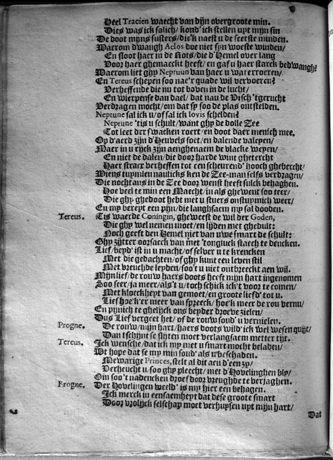 Heel Tracien waecht van dijn overgroote min.
Dies was ick salich / kond' ick stellen uyt mijn sin
De doot mijns susters / die 'k naest u de eerste minden.
Waerom dwangh Aeolus doe niet sijn woeste winden /
En sloot haer in de slots / die d' Hemel over langh
Voor haer ghemaeckt heeft / en gaf u haer starck bedwangh?
Waerom liet ghy Neptuun van haer u waerroeren /
En Tereus schepen soo naer d' quade wil vervoeren?
Verheffende die nu tot baven in de lucht /
En wierpense dan dael / dat nau de Visch 't gerucht
Verdragen mocht / om dat sy soo de plas ontstelden.
Neptune sal ick u / of sal ick Iovis schelden?
Neptune 't is u schult / want ghy de dolle Zee
Tot leet der swacken roert / en doot daer mensch mee.
Op d'aerd zijn d'Heuvels fort / en dalen de valeyen
Maer in u rijck zijn aenghenaem de blacke weyen /
En niet de dalen die door harde wint ghetrecht
Haer steurs verheffen tot een scheurend' hooch ghebercht /
Die nochtans in de Zee door wenst heeft sulck behaghen.
Hoe veel te min een Maecht in als ghewent soo teer /
Die ghy ghedoot hebt met u stuers onstuymich weer /
En my berept een pijn / die langhsaem my sal dooden.
Tereus. 'Tis waerde Coningin, gheweest de wil der Goden,
Die ghy wel nemen moet / en lijden met ghedult:
Noch geeft den Hemel niet van u we smart de schult:
Ghy zijtter oorsaeck van met 'tongluck staech te dencken.
Lief / beyd' ist in u macht / of selver u te krencken
Met die gedachten / of ghy kunt een leven stil
Met vreuchde leyden / soo 't u niet ontbreeckt aen wil.
Mijn lief / de rouw haers doots heeft mijn hart ingenomen
Soo seer / ja meer / als 't u / toch schick ick 't voor te comen /
Met kloeckheyt van gemoet / en groote liefd' tot u.
Lief hoe k' er meer van spreeck / hoe k meer de rou vernu /
En pynich te gheheugen ons beyder droeve zielen /
Dus Lief vergeet het / of de rou sond' u vernielen.
Progne. De rouw / mijn hart / haers doots wild' ick wel wesen quijt /
Van 't schijnse se stijten moet verlanghsaem metter tijt.
Tereus. Ick wenschte / dat ick my met u smart mocht beladen /
Ick hope dat se my min sond' als u beschaden.
Me waerdige Princes, stelt al dit aen d' een zy /
Verheucht u soo ghy pleecht / met d' Hovelinghen bly /
Om soo 't nadencken droef door vreughde te verjaghen.
Progne. Der Hovelingen weeld' is my hier een behagen.
Ick merck in eensaemheyt dat dese groote smart
Door vrolijck selschap moet verhupsen uyt mijn hart /
Dat